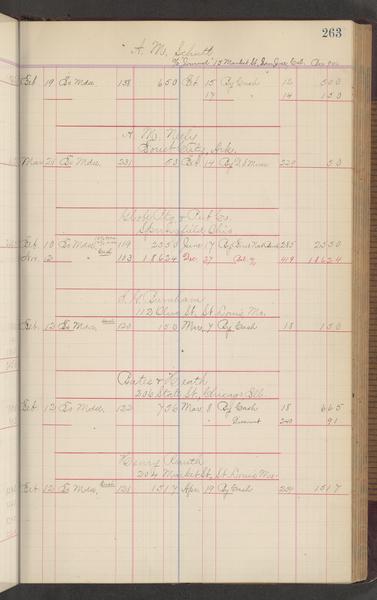 263
A. M. Schutt
Market St, San Jose, Cal.
Feb 19 To Mdse 138 6 50 Feb 15 By Cash 12 5 00
17 " 14 1 50
A. M. Neely
Forrest City, Ark.
Mar 21 To Mdse 231 50 Oct 14 By 220 50
Ptg & Pub Co.
Springfield Ohio
Feb. 10 To Mdse 119 23 50 June 17 By 285 23 50
Nov. 2 " 183 186 24 Dec. 27 Bal. 419 186 24
Burnham
112 Olive St. St. Louis Mo.
Feb. 12 To Mdse 120 1 50 Mar. 7 By Cash 18 1 50
Bates & Heath
206 State St. Chicago Ill.
Feb 12 To Mdse. 122 7 56 Mar. 8 By Cash 18 6 65
" Discount 240 91
Henry
204 Market St. St. Louis Mo.
Feb 12 To Mdse, 121 15 17 Apr. 19 By Cash 15 17